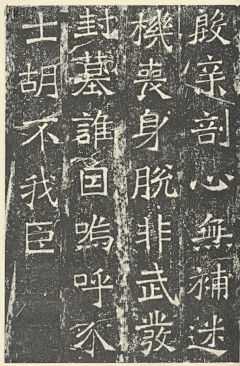 殷辛剖心無補迷
機喪身脫非武發
封墓誰因嗚呼介
士胡不我臣